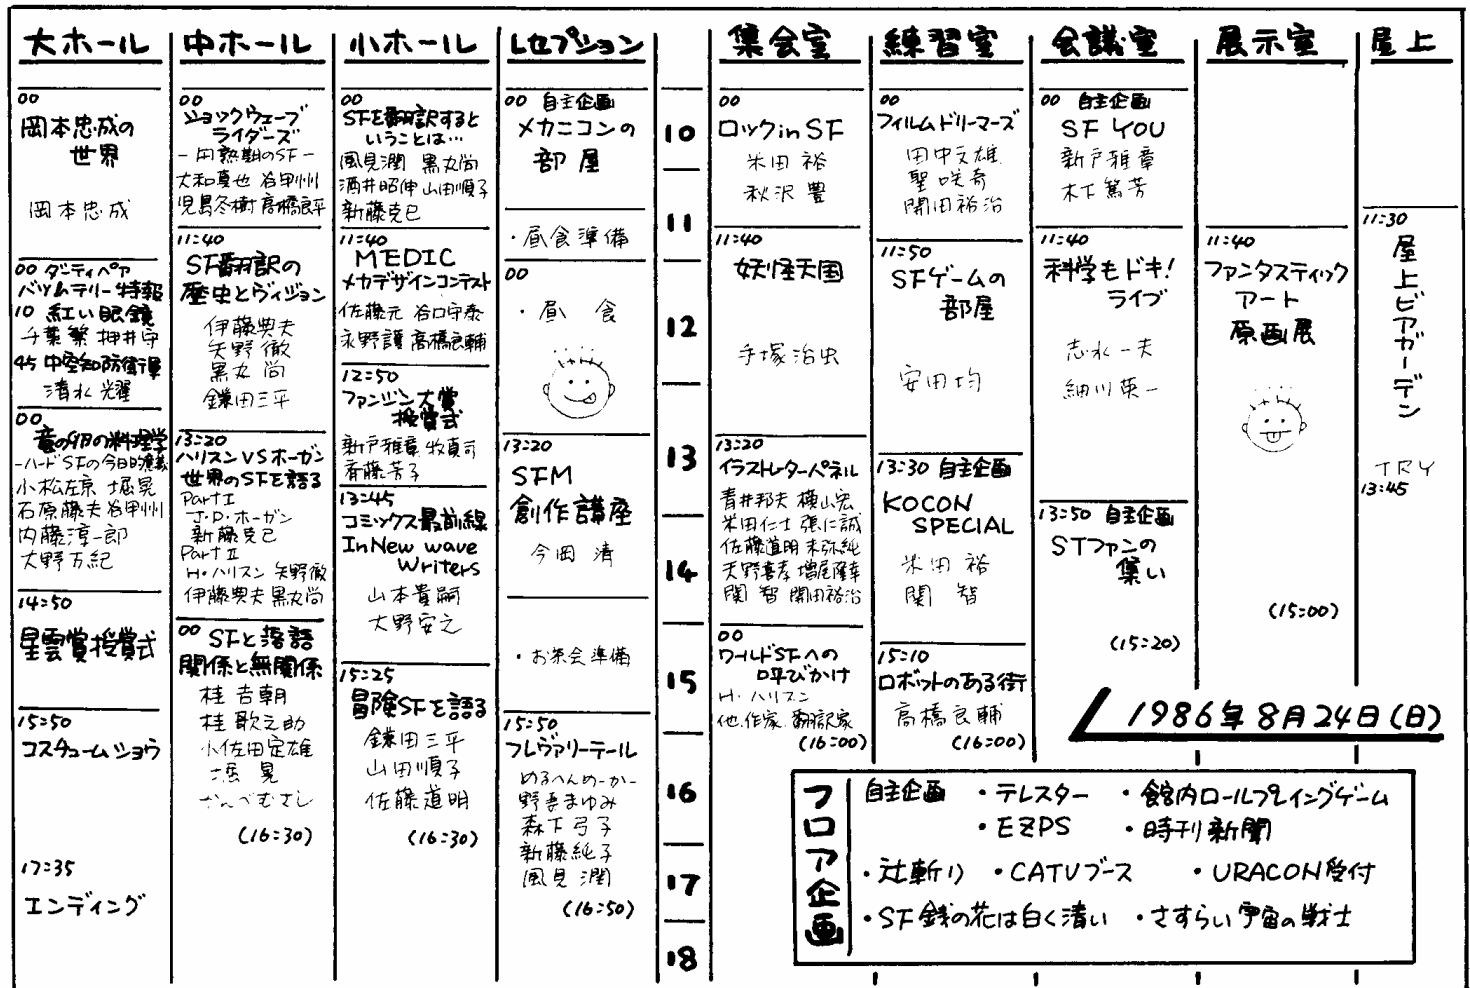 大ホール
00
岡本忠成の
世界
岡本忠成
00 ダーティペア
バツムテリー特報
10 紅い眼鏡
千葉繁 押井守
45 中空知防衛軍
清水 光曜
00
竜の卵の料理学
-ハードSFの今日明後日-
小松左京 堀晃
石原藤夫 谷甲州
内藤淳一郎
大野万紀
14:50
星雲賞授賞式
15:50
コスチュームショウ
17:35
エンディング
中ホール
00
ショックウェーブ
ライダーズ
-円熟期のSF-
大和真也 谷甲州
児島冬樹 高橋良平
11:40
SF翻訳の
歴史とヴィジョン
伊藤典夫
矢野徹
黒丸尚
鎌田三平
13:20
ハリスンVSホーガン
世界のSFを語る
Part I
J・P・ホーガン
新藤克己
Part II
H・ハリスン 矢野徹
伊藤典夫 黒丸尚
00 SFと落語
関係と無関係
桂吉朝
桂歌之助
小佐田定雄
堀晃
かんべむさし
(16:30)
小ホール
00
SFを翻訳すると
いうことは…
風見潤 黒丸尚
酒井昭伸 山田順子
新藤克己
11:40
MEDIC
メカデザインコンテスト
佐藤元 谷口守泰
永野護 高橋良輔
12:50
ファンジン大賞
授賞式
新戸雅章 牧真司
斉藤芳子
13:45
コミックス最前線
In New wave
Writers
山本貴嗣
大野安之
15:25
冒険SFを語る
鎌田三平
山田順子
佐藤道明
(16:30)
レセプション
00 自主企画
メカニコンの
部屋
・昼食準備
00
・昼 食
13:20
SFM
創作講座
今岡 清
・お茶会準備
15:50
フレヴァリーテール
めるへんめーかー
野妻まゆみ
森下弓子
新藤純子
風見潤
(16:50)
10
11
12
13
14
15
16
17
18
集会室
00
ロックinSF
米田 裕
秋沢 豊
11:40
妖怪天国
手塚治虫
13:20
イラストレーターパネル
青井邦夫 横山宏
米田仁士 張仁誠
佐藤道明 末弥純
天野喜孝 増尾隆幸
関 智 開田裕治
00
ワールドSFへの
呼びかけ
H・ハリスン
他作家 翻訳家
(16:00)
練習室
00
フィルムドリーマーズ
田中文雄
聖咲奇
開田裕治
11:50
SFゲームの
部屋
安田均
13:30 自主企画
KOCON
SPECIAL
米田 裕
関 智
15:10
ロボットのある街
高橋良輔
(16:00)
会議室
00 自主企画
SF YOU
新戸雅章
木下篤芳
11:40
科学もドキ!
ライブ
志水一夫
細川英一
13:50 自主企画
STファンの
集い
(15:20)
展示室
11:40
ファンタスティック
アート
原画展
(15:00)
屋上
11:30
屋上ビアガーデン
TRY
13:45
1986年8月24日(日)
フロア企画
自主企画 ・テレスター ・館内ロールプレイングゲーム
・EZPS ・時刊新聞
・辻斬り ・CATVブース ・URACON受付
・SF銭の花は白く清い ・さすらい宇宙の戦士